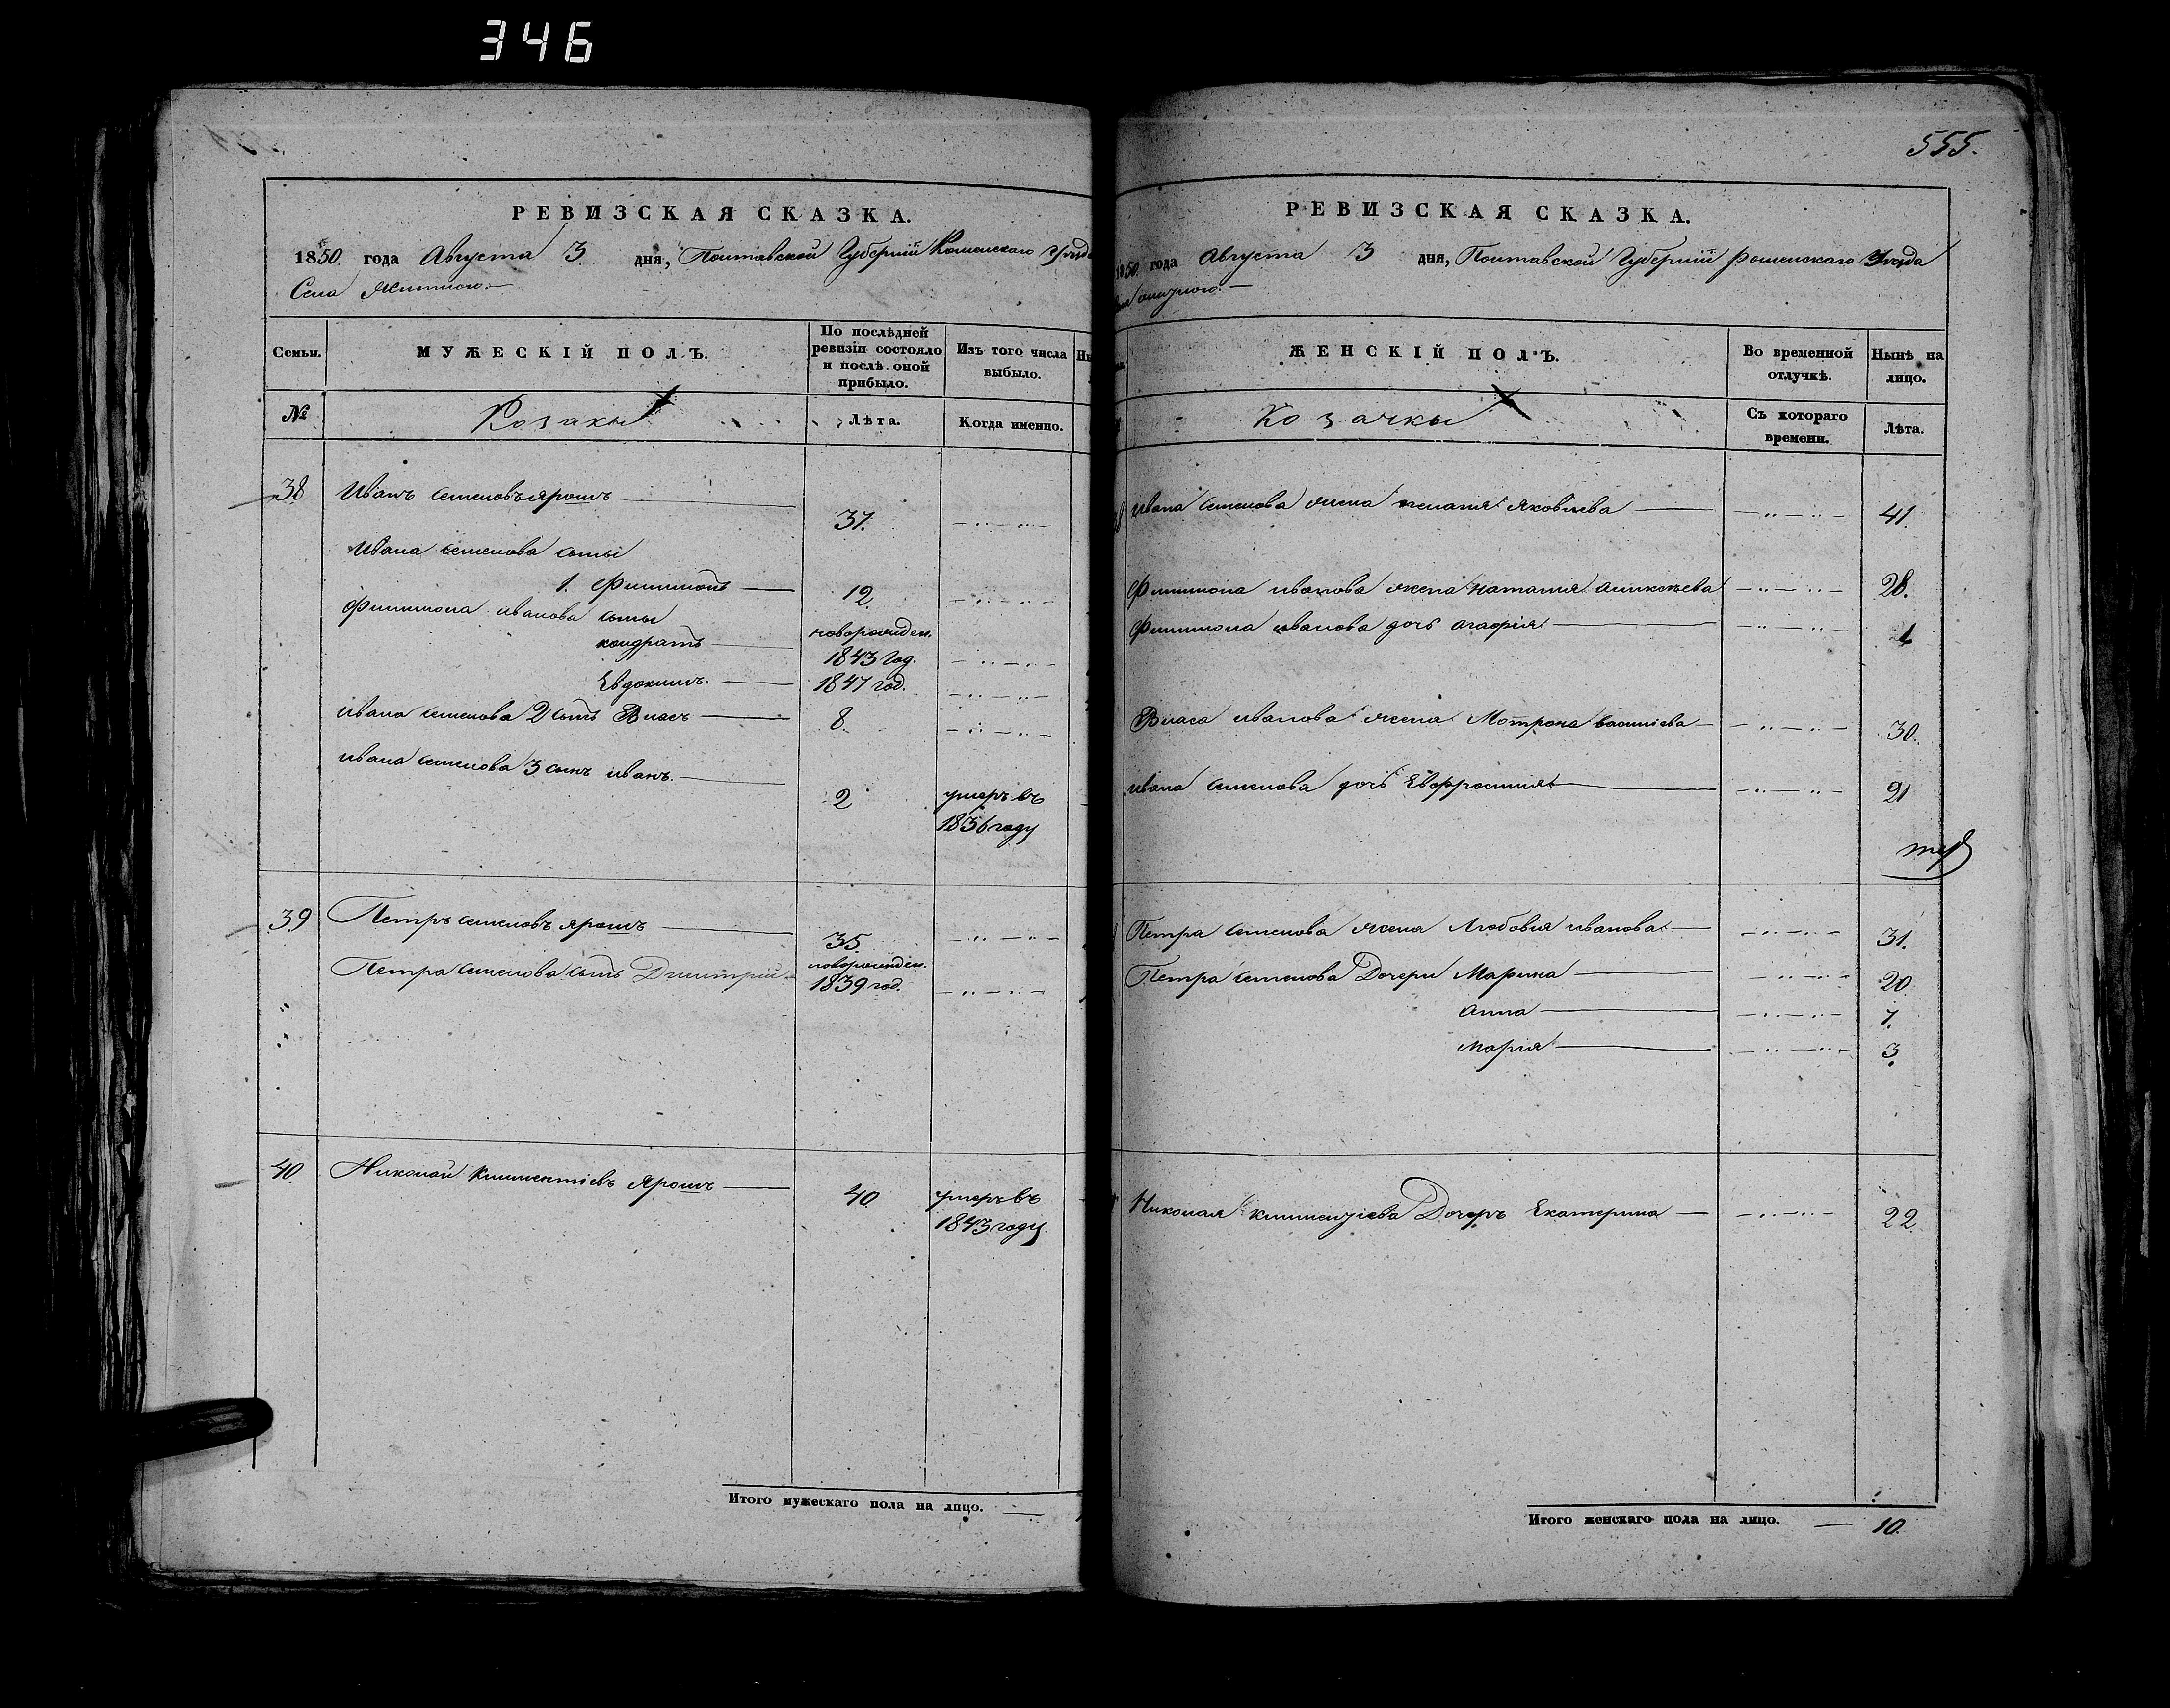 346
РЕВИЗСКАЯ СКАЗКА.
1850 года Августа 3 дня, Полтавской Губерніи Роменскаго Уѣзда
Села
Семьи.
МУЖЕСКІЙ ПОЛЪ.
По послѣдней ревизіи состояло и послѣ оной прибыло.
Изъ того числа выбыло.
№
Козаки
Лѣта.
Когда именно.
38 Иванъ Семеновъ Ярошъ 37.
Ивана Семенова сыны
1. Филимонъ 12.
Филимона Иванова сыны новорожден.
Кондратъ 1843 год.
Евдокимъ. 1847 год.
Ивана Семенова 2 сынъ Власъ 8.
Ивана Семенова 3 сынъ Иванъ. 2 умеръ въ
1836 году
39 Петръ Семеновъ Ярошъ 35.
Петра Семенова сынъ Дмитрій новорожден.
1839 год.
40. Николай Климентіевъ Ярошъ 40. умеръ въ
1843 году.
Итого мужескаго пола на лицо.
555.
РЕВИЗСКАЯ СКАЗКА.
1850 года Августа 3 дня, Полтавской Губерніи Роменскаго Уѣзда
ЖЕНСКІЙ ПОЛЪ.
Во временной отлучкѣ.
Нынѣ на лицо.
Козачки
Съ котораго времени.
Лѣта.
Ивана Семенова жена Меланія Яковлева 41.
Филимона Иванова жена Наталія Аликсѣева 28.
Филимона Иванова дочь Агафія 1
Власа Иванова жена Мотрона Василіева 30.
Ивана Семенова дочь Евфросинія 21
Петра Семенова жена Любовія Иванова 31.
Петра Семенова Дочери Марина 20.
Анна 7.
Марія 3.
Николая Климентіева Дочерь Екатерина 22.
Итого женскаго пола на лицо. 10.